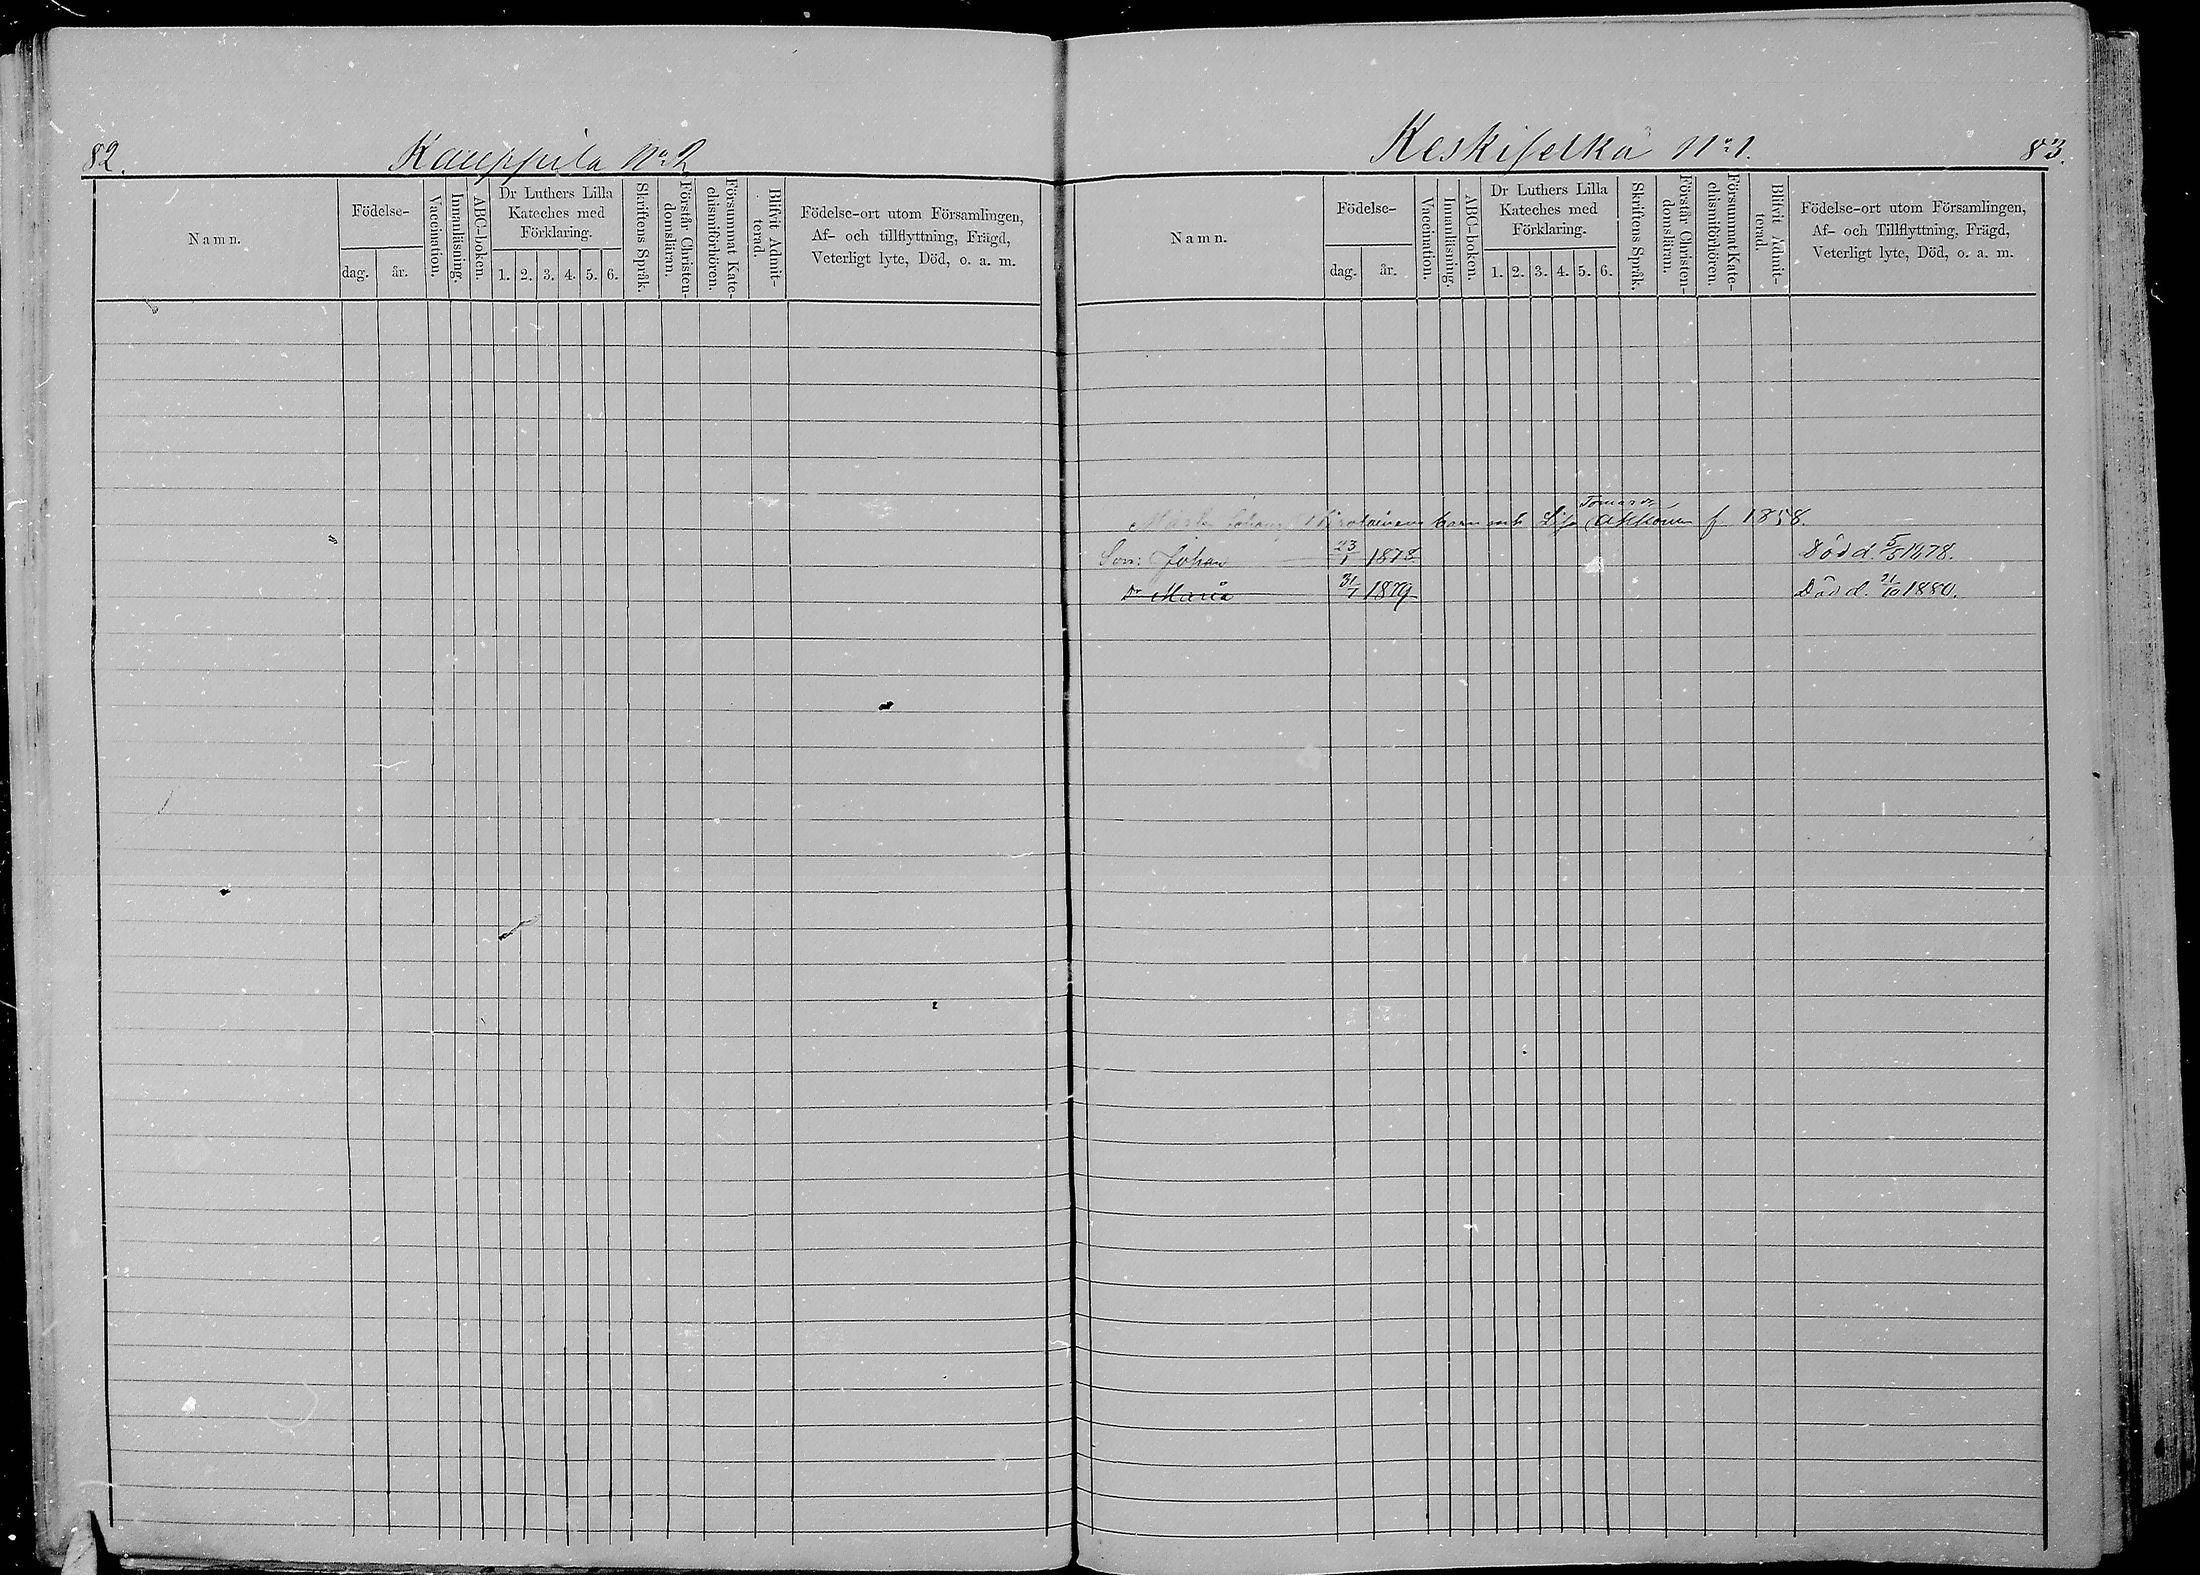 82.
Kauppila No 2
Namn.
Födelse-
dag.
år.
Vaccination.
Innanläsning.
ABC-boken.
Dr Luthers Lilla
Kateches med
Förklaring.
1. 2. 3. 4. 5. 6.
Skriftens Språk.
Förstår Christen-
domsläran.
Försummat Kate-
chismiförhören.
Blifvit Admit-
terad.
Födelse-ort utom Församlingen,
Af- och tillflyttning, Frägd,
Veterligt lyte, Död, o. a. m.
Keskiselkä No 1.
83.
Namn.
Födelse-
dag.
år.
Vaccination.
Innanläsning.
ABC-boken.
Dr Luthers Lilla
Kateches med
Förklaring.
1. 2. 3. 4. 5. 6.
Skriftens Språk.
Förstår Christen-
domsläran.
Försummat Kate-
chismiförhören.
Blifvit Admit-
terad.
Födelse-ort utom Församlingen,
Af- och Tillflyttning, Frägd,
Veterligt lyte, Död, o. a. m.
barn och Lisa f 1858.
Son: Johan 23/1 1878 Död d. 5/5 1878.
Dr Maria 31/7 1879 Död d. 21/10 1880.